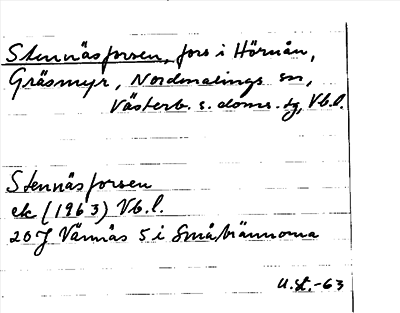 Stennäsforsen, fors i Hörnån,
Gräsmyr, Nordmalings sn,
Västerb. s. doms. tg, Vb.l.
Stennäsforsen
ek (1963) Vb.l.
20J Vännäs 5 i Småbrännorna
U.St.-63